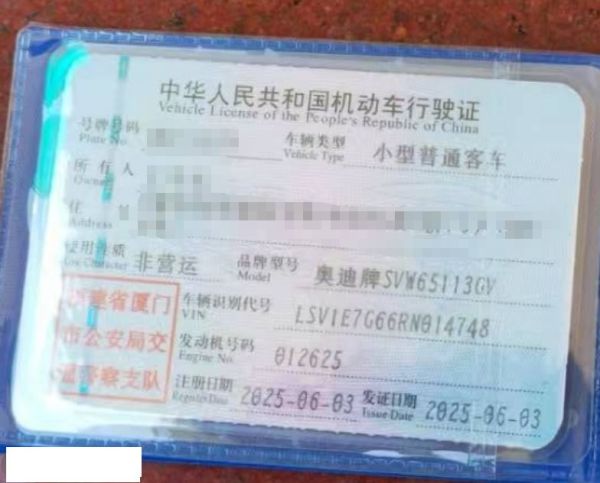 中华人民共和国机动车行驶证
Vehicle License of the People's Republic of China
号牌号码
Plate No.
车辆类型 小型普通客车
Vehicle Type
所有人
Owner
住
Address
使用性质 非营运
Use Character
品牌型号 奥迪牌SVW65113GV
Model
车辆识别代号 LSV1E7G66RN014748
VIN
发动机号码 012625
Engine No.
注册日期 2025-06-03
Register Date
发证日期 2025-06-03
Issue Date
建省厦门
市公安局交
警察支队